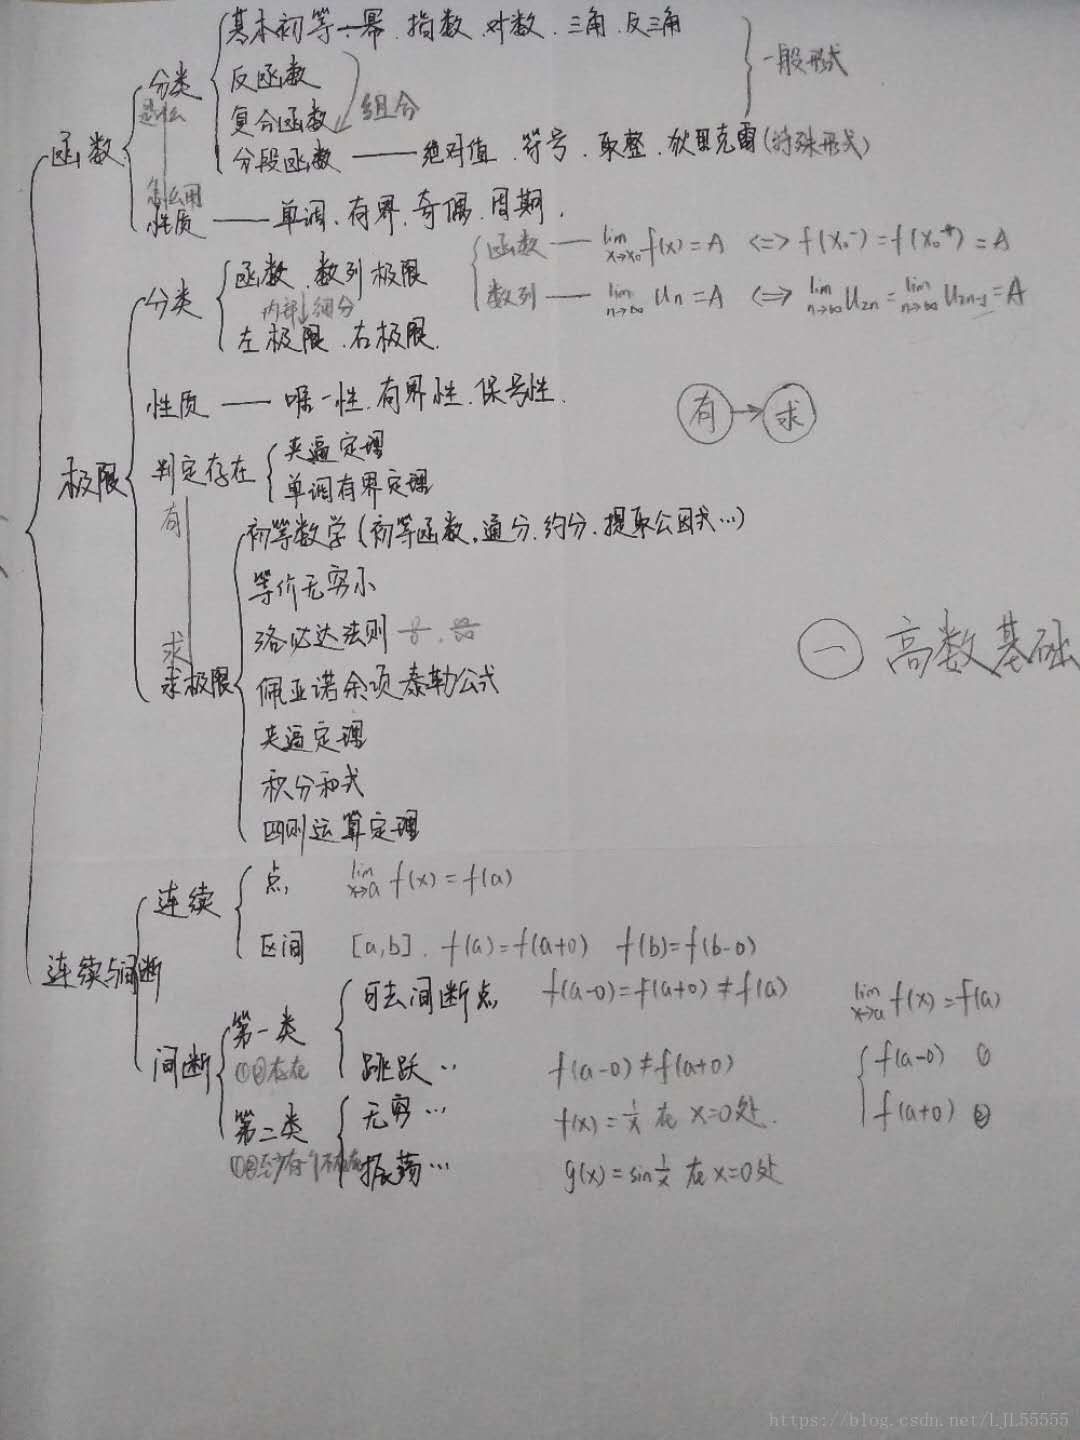 基本初等—幂、指数、对数、三角、反三角
一般形式
分类
反函数
是什么
复合函数
组合
函数
分段函数——绝对值、符号、取整、狄里克雷(特殊形式)
怎么用
性质——单调、有界、奇偶、周期.
函数、数列极限
函数—— lim x→x₀ f(x)=A <=> f(x₀⁻)=f(x₀⁺)=A
分类
内部↓细分
数列—— lim n→∞ Un=A <=> lim n→∞ U2n=lim n→∞ U2n-1=A
左极限、右极限.
性质——唯一性、有界性、保号性.
有→求
夹逼定理
极限
判定存在
单调有界定理
有
初等数学(初等函数,通分、约分、提取公因式…)
等价无穷小
洛必达法则 0/0、∞/∞
求
求极限
佩亚诺余项泰勒公式
一 高数基础
夹逼定理
积分和式
四则运算定理
点 lim x→a f(x)=f(a)
连续
区间 [a,b]. f(a)=f(a+0) f(b)=f(b-0)
连续与间断
可去间断点 f(a-0)=f(a+0)≠f(a)
lim x→a f(x)=f(a)
第一类
间断
①②存在
跳跃‥ f(a-0)≠f(a+0)
f(a-0) ①
第二类
无穷… f(x)=1/x 在 x=0处.
f(a+0) ②
①②至少有个不存在
振荡… g(x)=sin1/x 在x=0处
https://blog.csdn.net/LJL55555